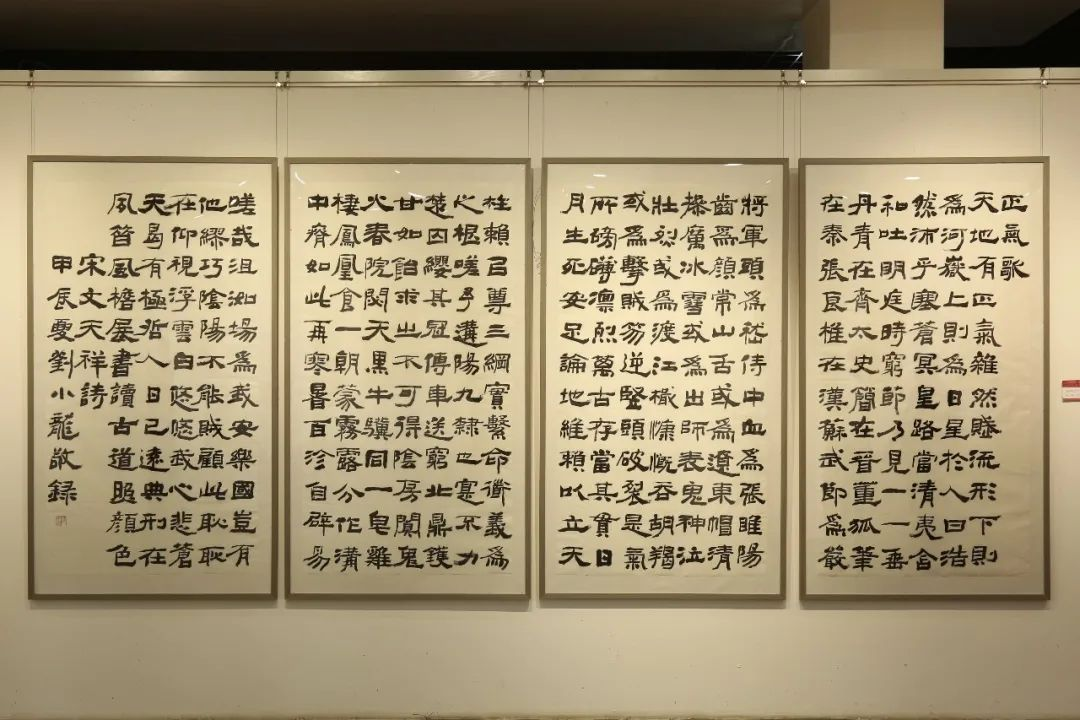 正氣歌
天地有正氣雜然賦流形下則
為河嶽上則為日星於人曰浩
然沛乎塞蒼冥皇路當清夷含
和吐明庭時窮節乃見一一垂
丹青在齊太史簡在晉董狐筆
在秦張良椎在漢蘇武節為嚴
將軍頭為嵇侍中血為張睢陽
齒為顏常山舌或為遼東帽清
操厲冰雪或為出師表鬼神泣
壯烈或為渡江楫慷慨吞胡羯
或為擊賊笏逆豎頭破裂是氣
所磅礴凜烈萬古存當其貫日
月生死安足論地維賴以立天
柱賴以尊三綱實繫命道義為
之根嗟予遘陽九隸也實不力
楚囚纓其冠傳車送窮北鼎鑊
甘如飴求之不可得陰房闃鬼
火春院閟天黑牛驥同一皂雞
棲鳳凰食一朝蒙霧露分作溝
中瘠如此再寒暑百沴自辟易
嗟哉沮洳場為我安樂國豈有
他繆巧陰陽不能賊顧此耿耿
在仰視浮雲白悠悠我心悲蒼
天曷有極哲人日已遠典刑在
夙昔風檐展書讀古道照顏色
宋文天祥詩
甲辰夏劉小龍敬錄